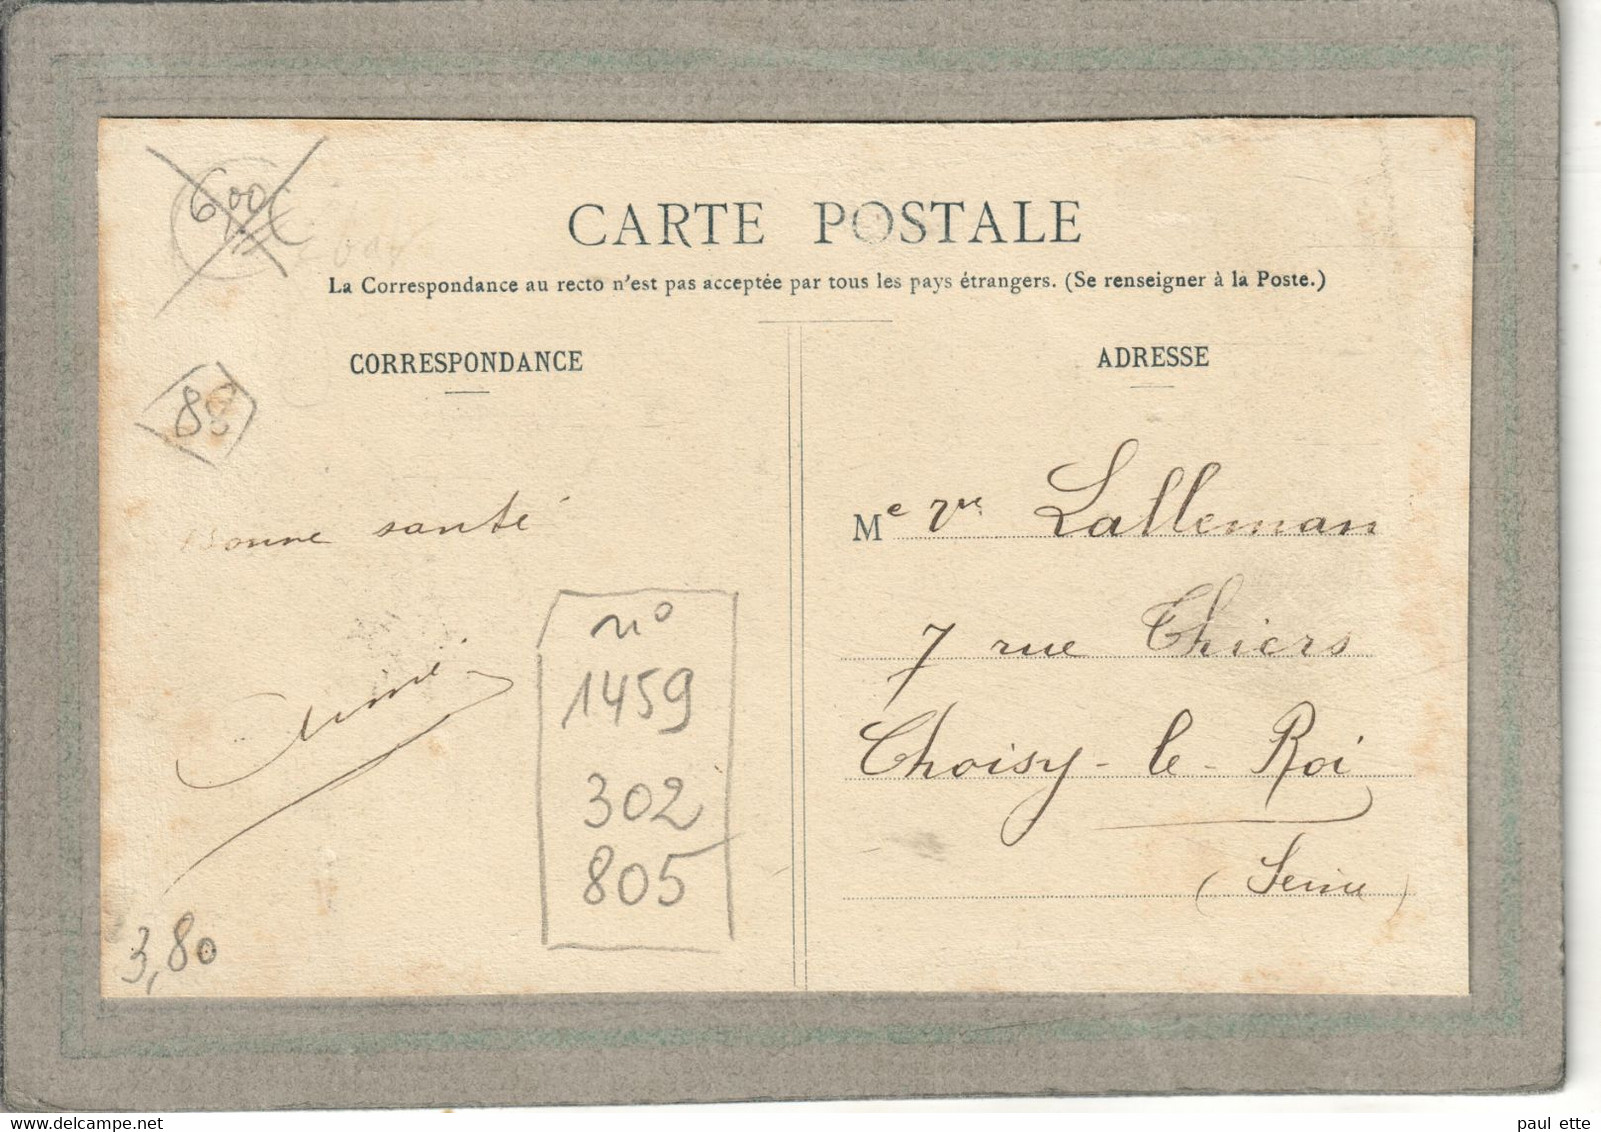 6,00€
CARTE POSTALE
La Correspondance au recto n'est pas acceptée par tous les pays étrangers. (Se renseigner à la Poste.)
CORRESPONDANCE
ADRESSE
88
Bonne santé
Mᵉ Vve Lalleman
7 rue Thiers
Choisy-le-Roi
(Seine)
n°
1459
302
805
3,80
www.delcampe.net
paul ette